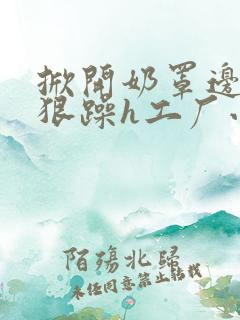 掀開奶罩邊
狠躁h工厂、
陌殇北歸
未任同意禁止转载